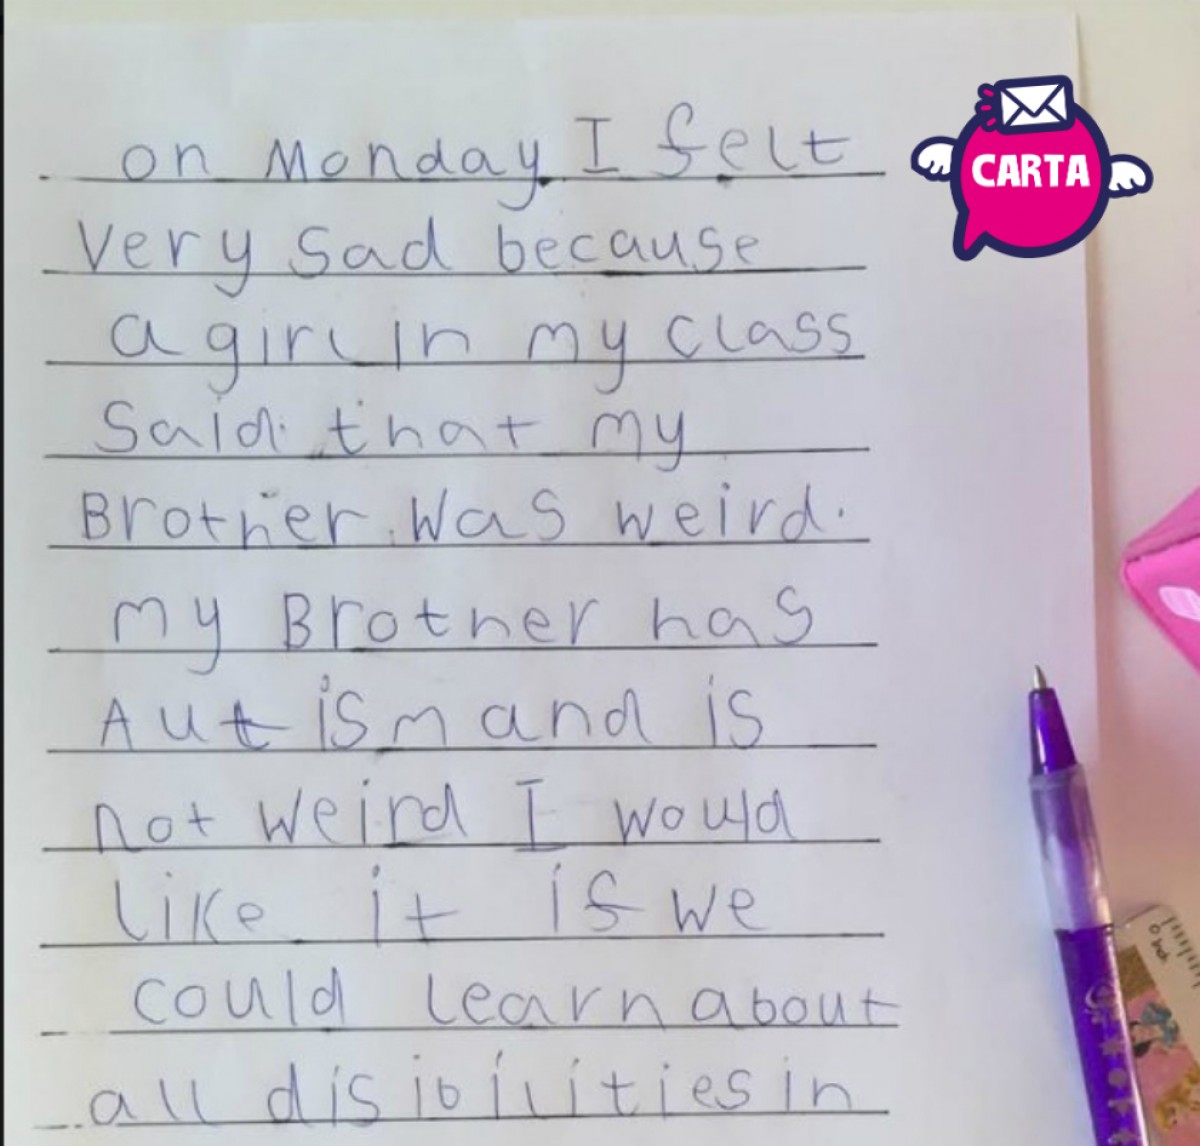 on Monday I felt
very sad because
a girl in my class
Said that my
Brother was weird.
my Brother has
Autism and is
not weird I would
like it if we
could learn about
all disibilities in
CARTA